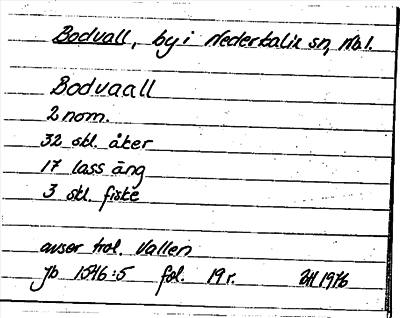 Bodvall, by i Nederkalix sn, Nbl.
Bodvaall
2 nom.
32 skl. åker
17 lass äng
3 skl. fiske
avser trol. Vallen
Jb 1546:5 fol. 19 r. 1976